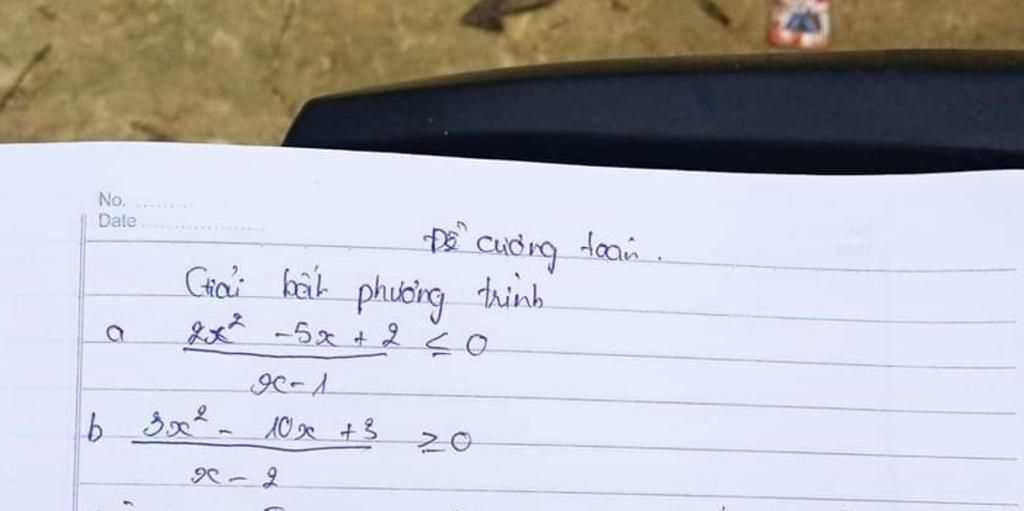 No. ..........
Date ....................
Đề cương toán.
Giải bất phương trình
a 2x² - 5x + 2 ≤ 0
x - 1
b 3x² - 10x + 3 ≥ 0
x - 2